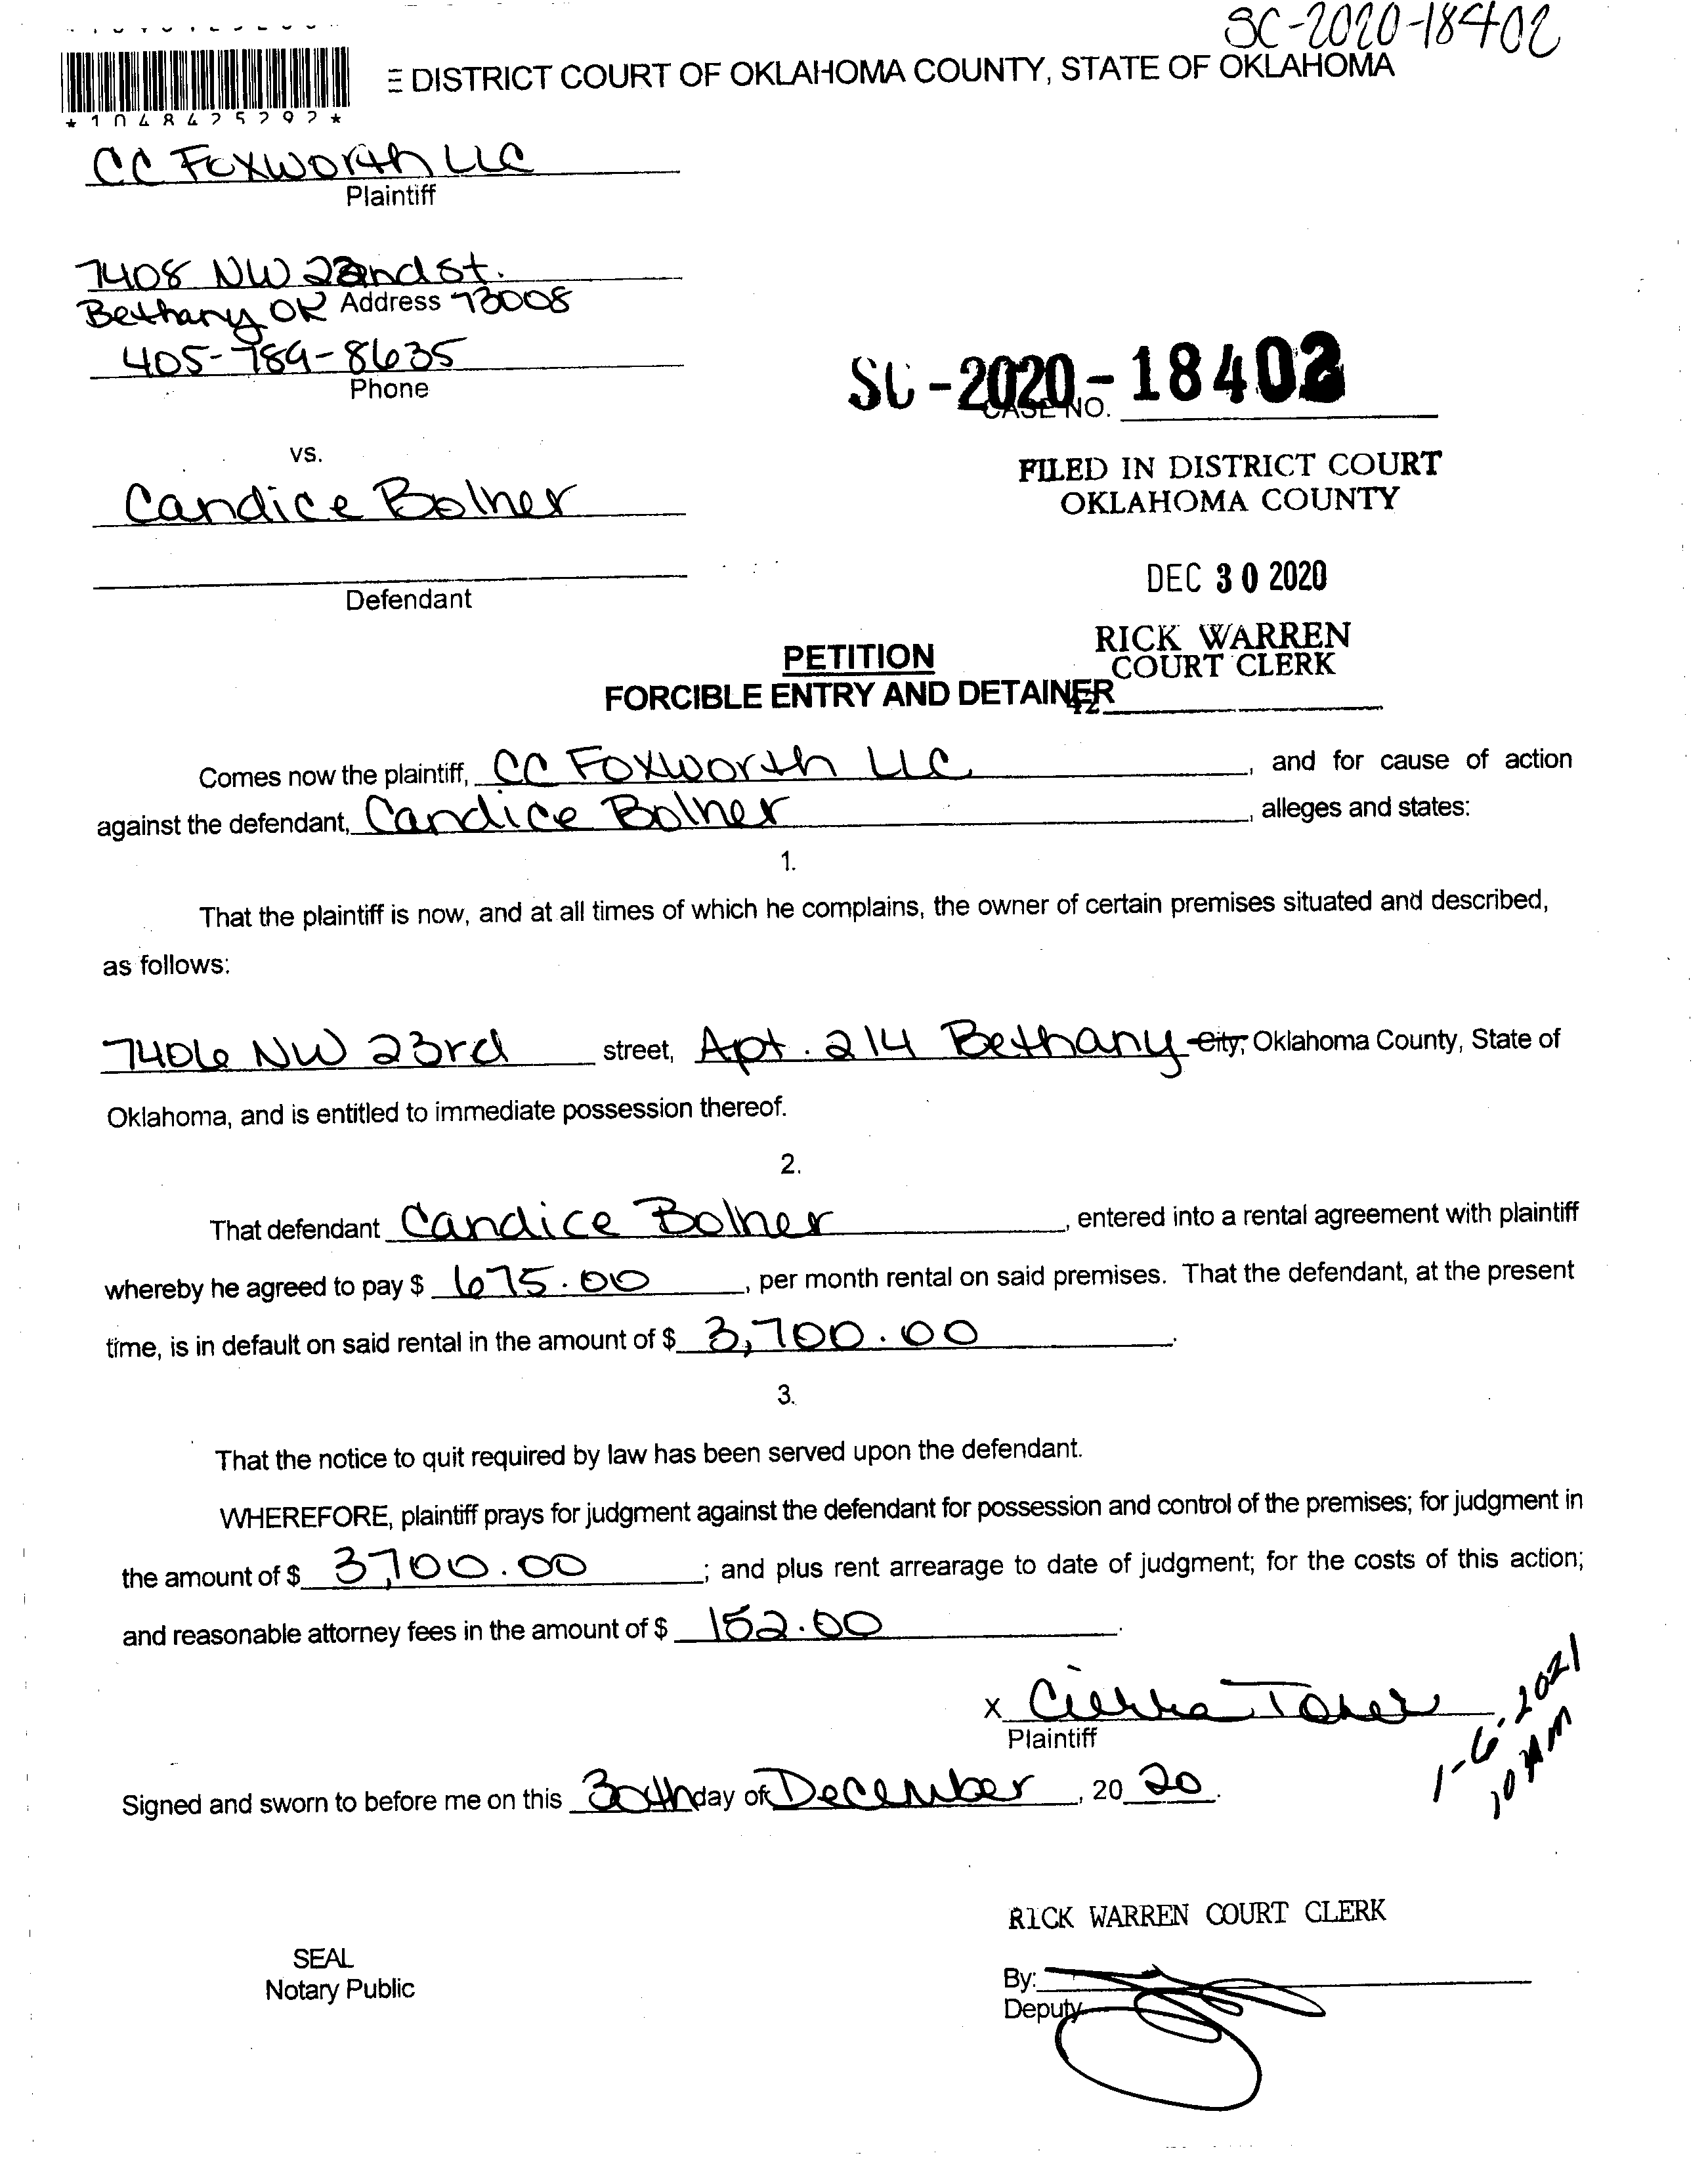 SC-2020-18402
E DISTRICT COURT OF OKLAHOMA COUNTY, STATE OF OKLAHOMA
*1048425292*
CC Foxworth LLC
Plaintiff
7408 NW 23rd St.
Bethany OK Address 73008
405-789-8635
Phone
SC-2020-18402
CASE NO.
vs.
FILED IN DISTRICT COURT
OKLAHOMA COUNTY
Candice Bolner
DEC 30 2020
Defendant
RICK WARREN
COURT CLERK
PETITION
FORCIBLE ENTRY AND DETAINER
42
Comes now the plaintiff, CC Foxworth LLC, and for cause of action
against the defendant, Candice Bolner, alleges and states:
1.
That the plaintiff is now, and at all times of which he complains, the owner of certain premises situated and described,
as follows:
7406 NW 23rd street, Apt. 214 Bethany City, Oklahoma County, State of
Oklahoma, and is entitled to immediate possession thereof.
2.
That defendant Candice Bolner, entered into a rental agreement with plaintiff
whereby he agreed to pay $ 675.00, per month rental on said premises. That the defendant, at the present
time, is in default on said rental in the amount of $ 3,700.00.
3.
That the notice to quit required by law has been served upon the defendant.
WHEREFORE, plaintiff prays for judgment against the defendant for possession and control of the premises; for judgment in
the amount of $ 3,700.00; and plus rent arrearage to date of judgment; for the costs of this action;
and reasonable attorney fees in the amount of $ 152.00.
x
Plaintiff
1-6, 2021
10 AM
Signed and sworn to before me on this 30th day of December, 20 20.
RICK WARREN COURT CLERK
SEAL
Notary Public
By:
Deputy